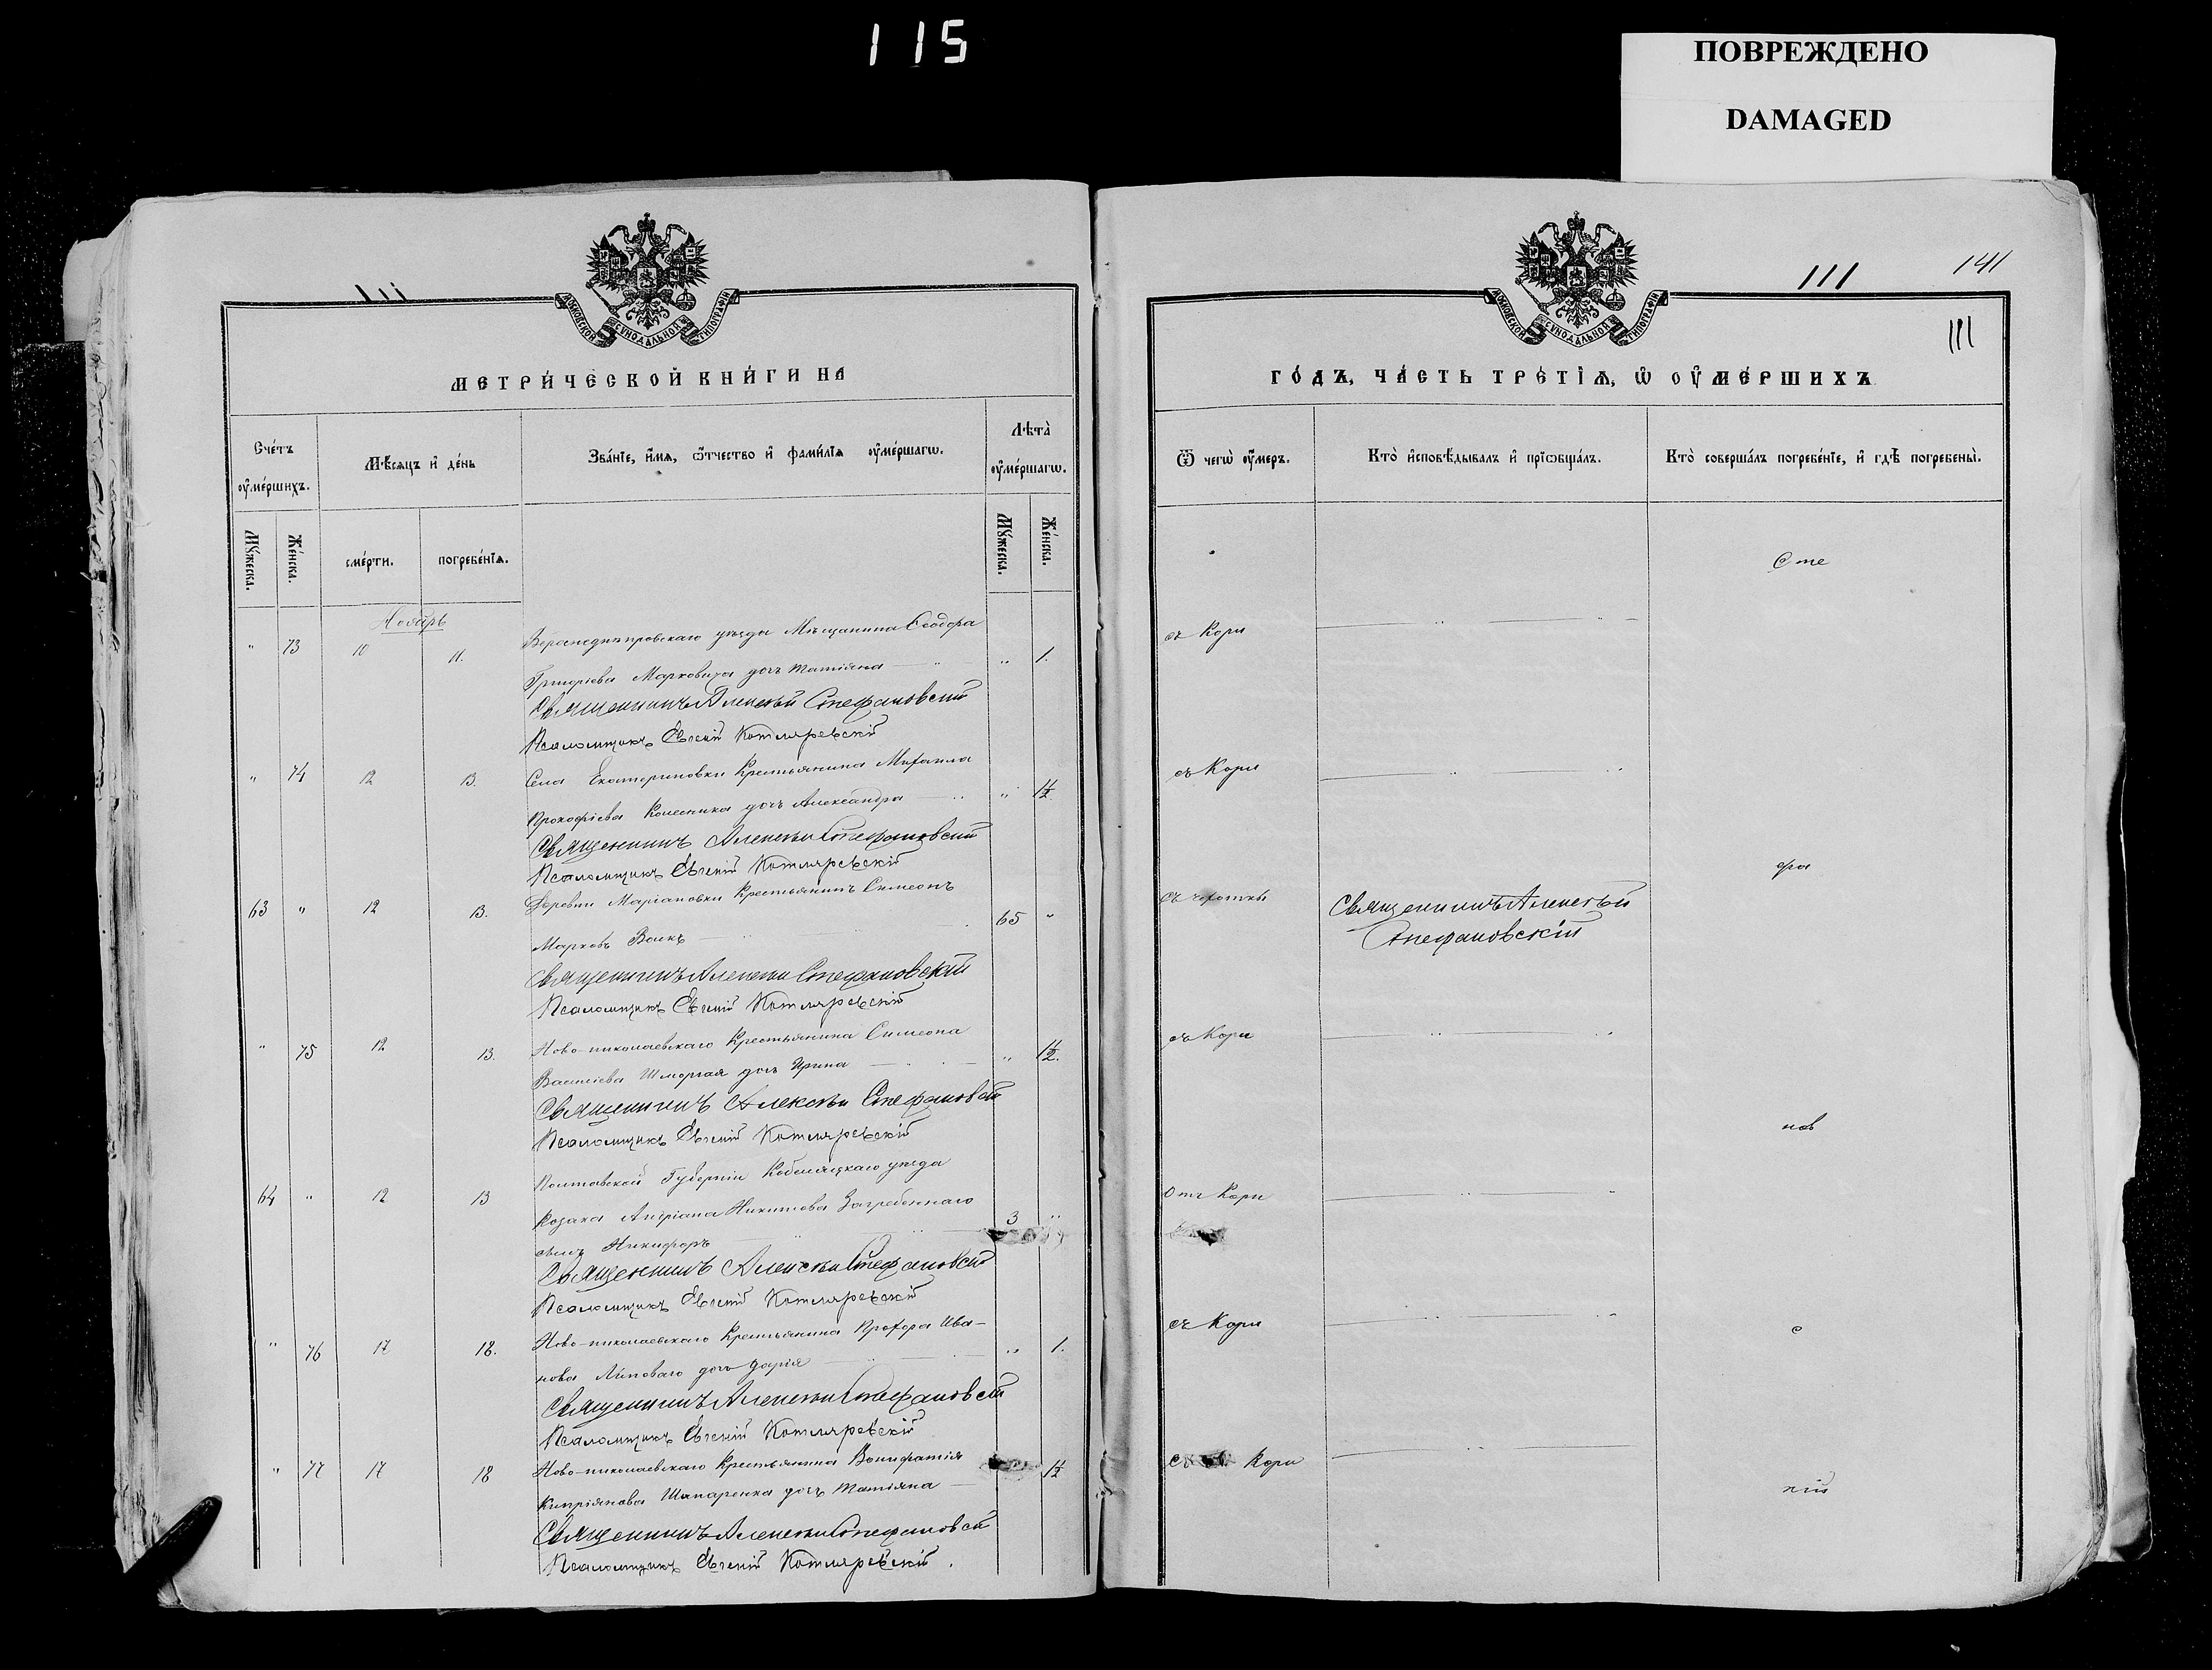 115
ПОВРЕЖДЕНО
DAMAGED
111
МОСКОВСКОЙ СѴНОДАЛЬНОЙ ТИПОГРАФІИ
МЕТРИ́ЧЕСКОЙ КНИ́ГИ НА
Сче́тъ оу҆ме́ршихъ.
Мѣ́сяцъ и҆ де́нь
Зва́нїе, и҆́мѧ, ѻ҆́тчество и҆ фами́лїѧ оу҆ме́ршагѡ.
Лѣта̀ оу҆ме́ршагѡ.
Мꙋ́жеска.
Же́нска.
сме́рти.
погребе́нїѧ.
Мꙋ́жеска.
Же́нска.
Ноябрь
" 73 10 11. Верхнеднѣпровскаго уѣзда Мѣщанина Ѳеодора
Григоріева Марковича дочь Татіяна " 1.
Священникъ Алексѣй Стефановскій
Псаломщикъ Евгеній Котляревскій
" 74 12 13. Села Екатериновки Крестьянина Михаила
Прокофіева Колесника дочь Александра " 1½
Священникъ Алексѣй Стефановскій
Псаломщикъ Евгеній Котляревскій
63 " 12 13. Деревни Маріановки Крестьянинъ Симеонъ
Марковъ 65 "
Священникъ Алексѣй Стефановскій
Псаломщикъ Евгеній Котляревскій
" 75 12 13. Ново-николаевскаго Крестьянина Симеона
Василіева Шморгая дочь Ирина " 1½.
Священникъ Алексѣй Стефановскій
Псаломщикъ Евгеній Котляревскій
64 " 12 13 Полтавской Губерніи Кобеляцкаго уѣзда
Козака Андріана Никитова Загребельнаго
сынъ Никифоръ 3 "
Священникъ Алексѣй Стефановскій
Псаломщикъ Евгеній Котляревскій
" 76 17 18. Ново-николаевскаго Крестьянина Прохора Ива-
нова Липоваго дочь Дарія " 1.
Священникъ Алексѣй Стефановскій
Псаломщикъ Евгеній Котляревскій
" 77 17 18 Ново-николаевскаго Крестьянина Вонифатія
Кипріянова Шапаренка дочь Татіяна 1½
Священникъ Алексѣй Стефановскій
Псаломщикъ Евгеній Котляревскій.
111
141
111
МОСКОВСКОЙ СѴНОДАЛЬНОЙ ТИПОГРАФІИ
ГО́ДЪ, ЧА́СТЬ ТРЕ́ТЇѦ, Ѡ҆ ОУ҆МЕ́РШИХЪ
Ѿ чегѡ̀ оу҆́меръ.
Кто̀ и҆сповѣ́дывалъ и҆ прїѡбща́лъ.
Кто̀ соверша́лъ погребе́нїе, и҆ гдѣ̀ погребены̀.
Сте
съ Кори
съ Кори
фа
съ чахотки
Священникъ Алексѣй
Стефановскій
съ Кори
нов
отъ Кори
съ Кори
с
Кори
кій